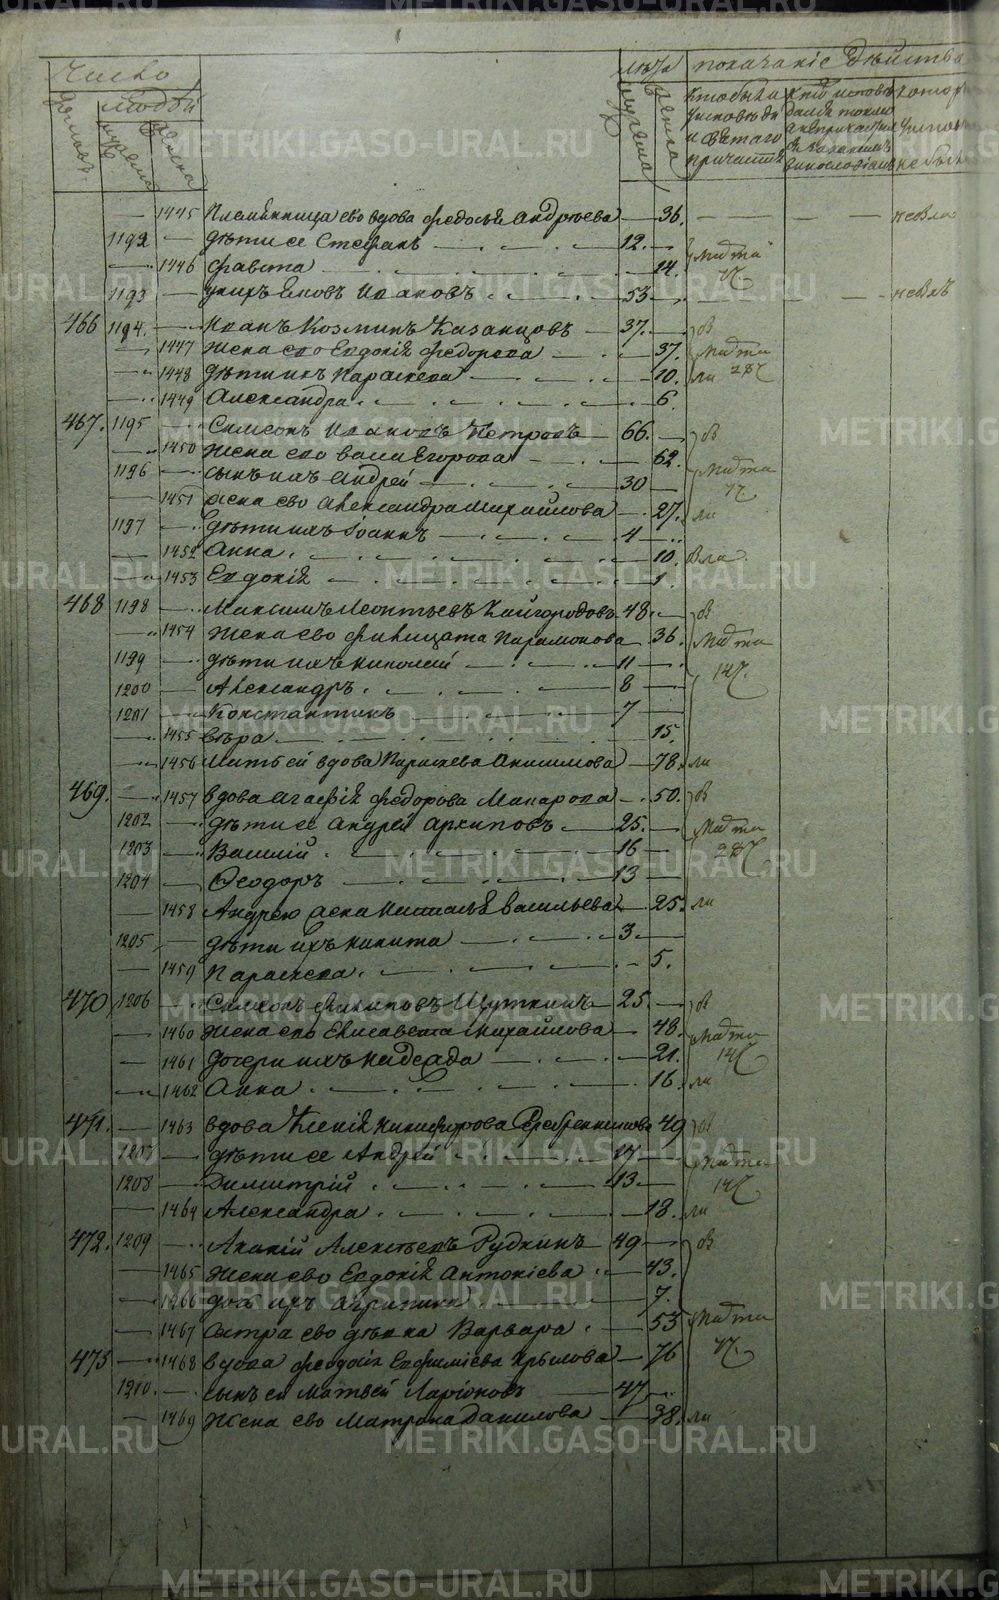 Число
домовъ
людей
мужеска
женска
лѣта
мужеска
женска
показаніе дѣйства
Кто были
у исповѣди
и святаго
причастія
1445 Племянница ево вдова Федосья Андреева — 36. — — — небыла
1192 — дѣти ее Стефанъ — 12. —
1446 Фавста — 14. марта
1193 — Иаковъ Ивановъ — 53 — — — небылъ
466 1194. — Иванъ Козминъ Казанцовъ — 37. — бы
1447 Жена ево Евдокія Федорова — 37. марта
1448 дѣти ихъ Параскева — 10. ли 28
1449 Александра — 6.
467. 1195 — Симеонъ Ивановъ Петровъ — 66. — бы
1450 Жена ево Васса Егорова — 62.
1196 — сынъ ихъ Андрей — 30 — марта
1451 Жена ево Александра Михайлова — 27. ли
1197 — дѣти ихъ Іоаннъ — 4 —
1452 Анна — 10. была
1453 Евдокія — 1.
468 1198 — Максимъ Леонтьевъ Кайгородовъ 48. — бы
1454 Жена ево Филицата Парамонова 36. марта
1199 — дѣти ихъ Николай — 11 —
1200 — Александръ — 8 — 14
1201 — Константинъ — 7 —
1455 Вѣра — 15.
1456 Мать ей вдова Параскева Анисимова — 78. ли
469. 1457 вдова Агафія Федорова Макарова — 50. бы
1202 — дѣти ее Андрей Архиповъ — 25. — марта
1203 — Василій — 16 — 28
1204 — Феодоръ — 13 —
1458 Андрею жена Наталья Васильева — 25. ли
1205 — дѣти ихъ Никита — 3 —
1459 Параскева — 5.
470 1206 — Симеонъ Филиповъ Шуткинъ — 25. — бы
1460 Жена ево Елисавета Михайлова — 48. марта
1461 дочери ихъ Надежда — 21. 14
1462 Анна — 16. ли
471. 1463 вдова Ксенія Никифорова Серебренникова 49 бы
1207 — дѣти ее Андрей — 17 — марта
1208 — Димитрій — 13 — 14
1464 Александра — 18. ли
472. 1209 — Акакій Алексѣевъ Рудкинъ — 49 — бы
1465 Жена ево Евдокія Антоніева — 43.
1466 дочь ихъ Агрипина — 7.
1467 Сестра ево дѣвка Варвара — 53 марта
473 1468 вдова Феодосія Евфиміева Крылова — 76
1210. — сынъ ея Матвей Ларіоновъ — 47 —
1469 Жена ево Матрона Данилова — 38. ли
METRIKI.GASO-URAL.RU